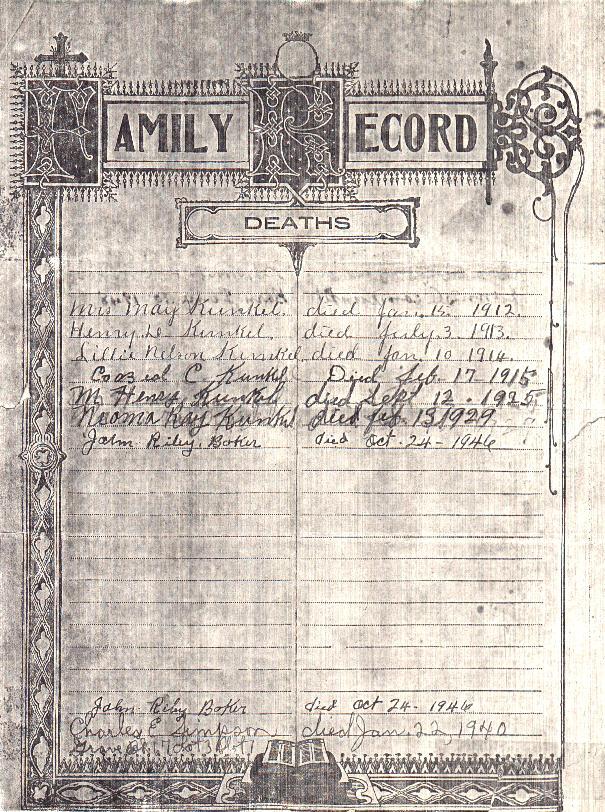 FAMILY RECORD
DEATHS
Mrs May Kunkel. died Jan. 15. 1912.
Henry D. Kunkel. died July. 3 1913.
Lillie Nelson Kunkel. died Jan. 10 1914.
C. Kunkel Died Feb. 17 1915
M. Henry Kunkel died Sept 12 . 1925
Neoma Kay Kunkel died feb. 13 1929
John Riley. Boker died Oct-24-1946
John Riley Boker died Oct 24- 1946
Charles E Simpson died Jan. 22, 1940